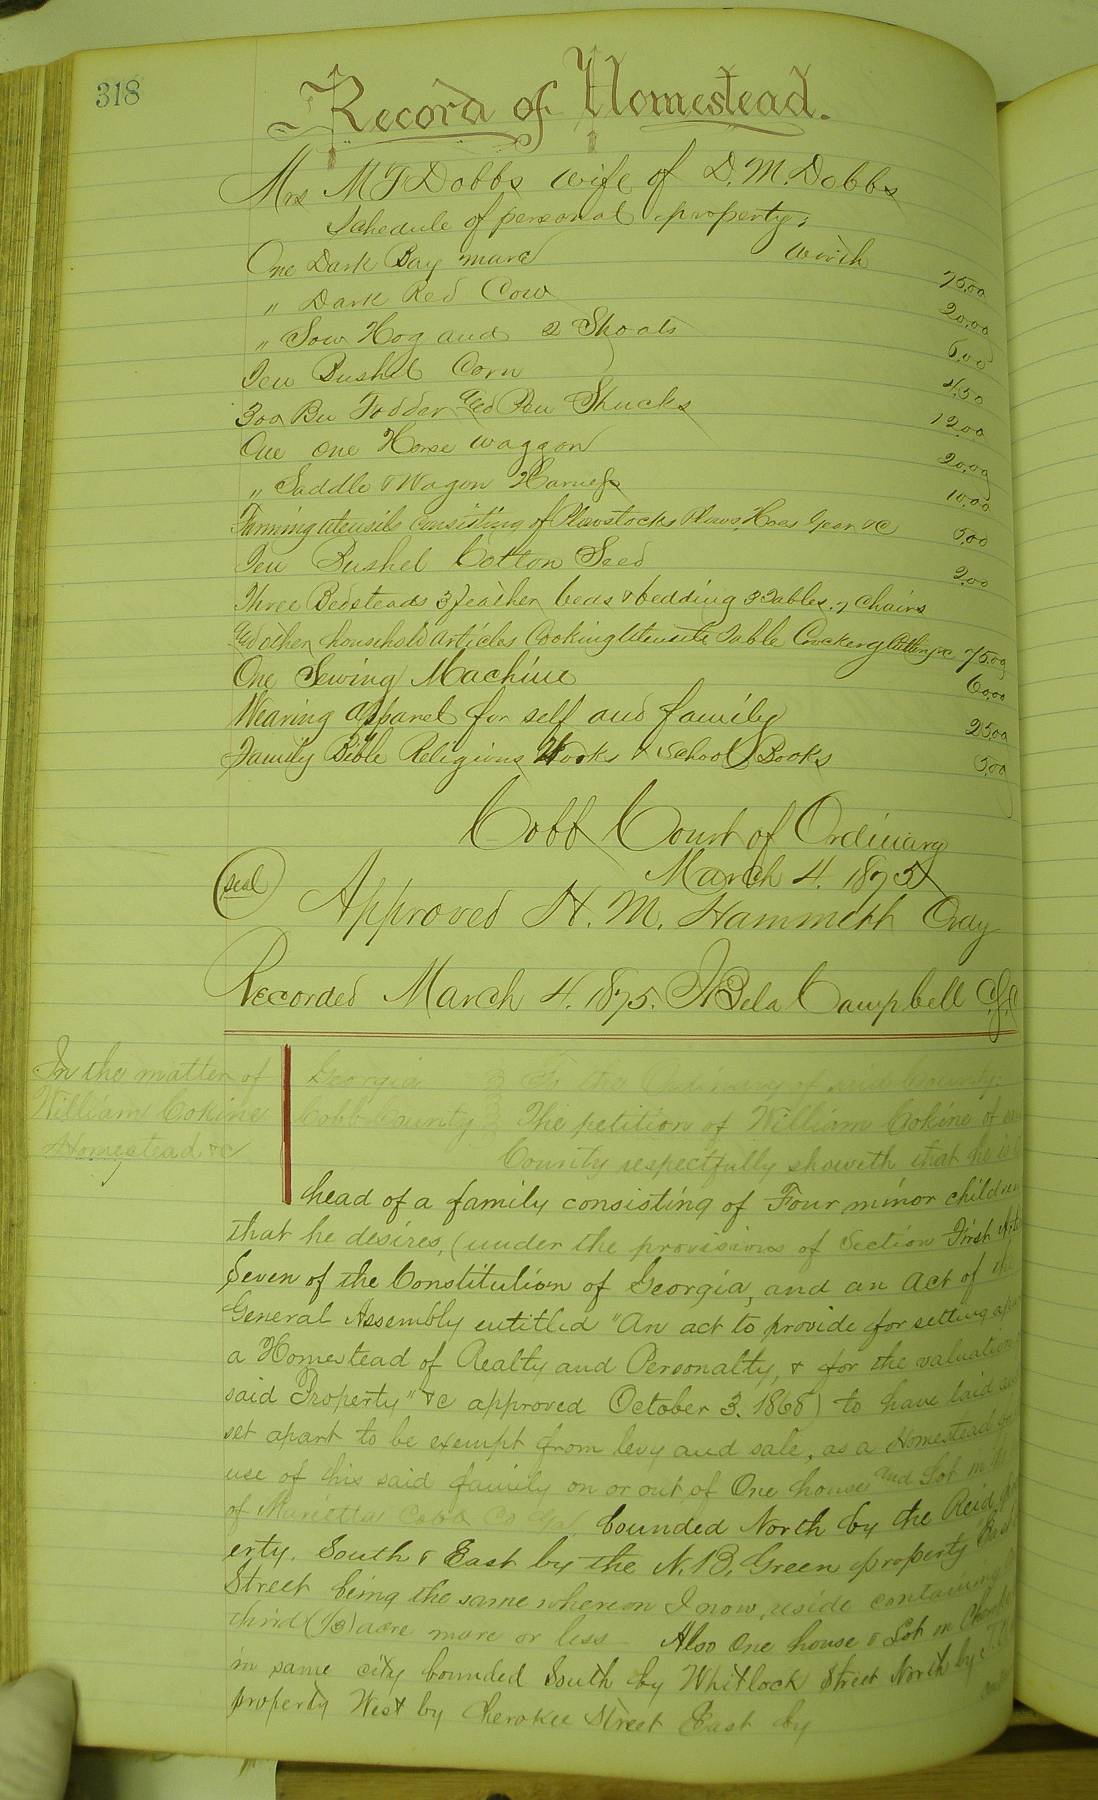 318
Record of Homestead.
Mrs M J Dobbs wife of D. M. Dobbs
Schedule of personal property;
One Dark Bay mare worth 75.00
" Dark Red Cow 20.00
" Sow Hog and 2 Shoats 6.00
Ten Bushel Corn 7.50
300 Bu Fodder and Pen Shucks 12.00
One one Horse waggon 20.00
" Saddle & Wagon Harness 10.00
Farming utensils consisting of Plowstocks Plows Hoes Gear &c 5.00
Ten Bushel Cotton Seed 2.00
Three Bedsteads 3 feather beds & bedding 3 Tables. 7 Chairs
and other household articles Cooking Utensils Table Crockery Cutlery &c 75.00
One Sewing Machine 60.00
Wearing Apparel for self and family 25.00
Family Bible Religious Works & School Books 5.00
Cobb Court of Ordinary
March 4. 1875
(seal) Approved H. M. Hammett Ordy
Recorded March 4. 1875. J Bela Campbell
In the matter of
William Cokine
Homestead &c
Georgia } To the Ordinary of said County:
Cobb County } The petition of William Cokine of
County respectfully showeth that he is
head of a family consisting of Four minor children
that he desires, (under the provisions of Section First
Seven of the Constitution of Georgia, and an Act of the
General Assembly entitled "An act to provide for setting apart
a Homestead of Realty and Personalty, & for the valuation
said Property" &c approved October 3. 1868) to have laid
set apart to be exempt from levy and sale, as a Homestead
use of his said family on or out of One house and Lot in
of Marietta Cobb Co Ga. bounded North by the Reid
erty. South & East by the N. B. Green property
Street being the same whereon I now reside containing
third (1/3) acre more or less Also One house & Lot on
in same city bounded South by Whitlock Street North by
property West by Cherokee Street East by